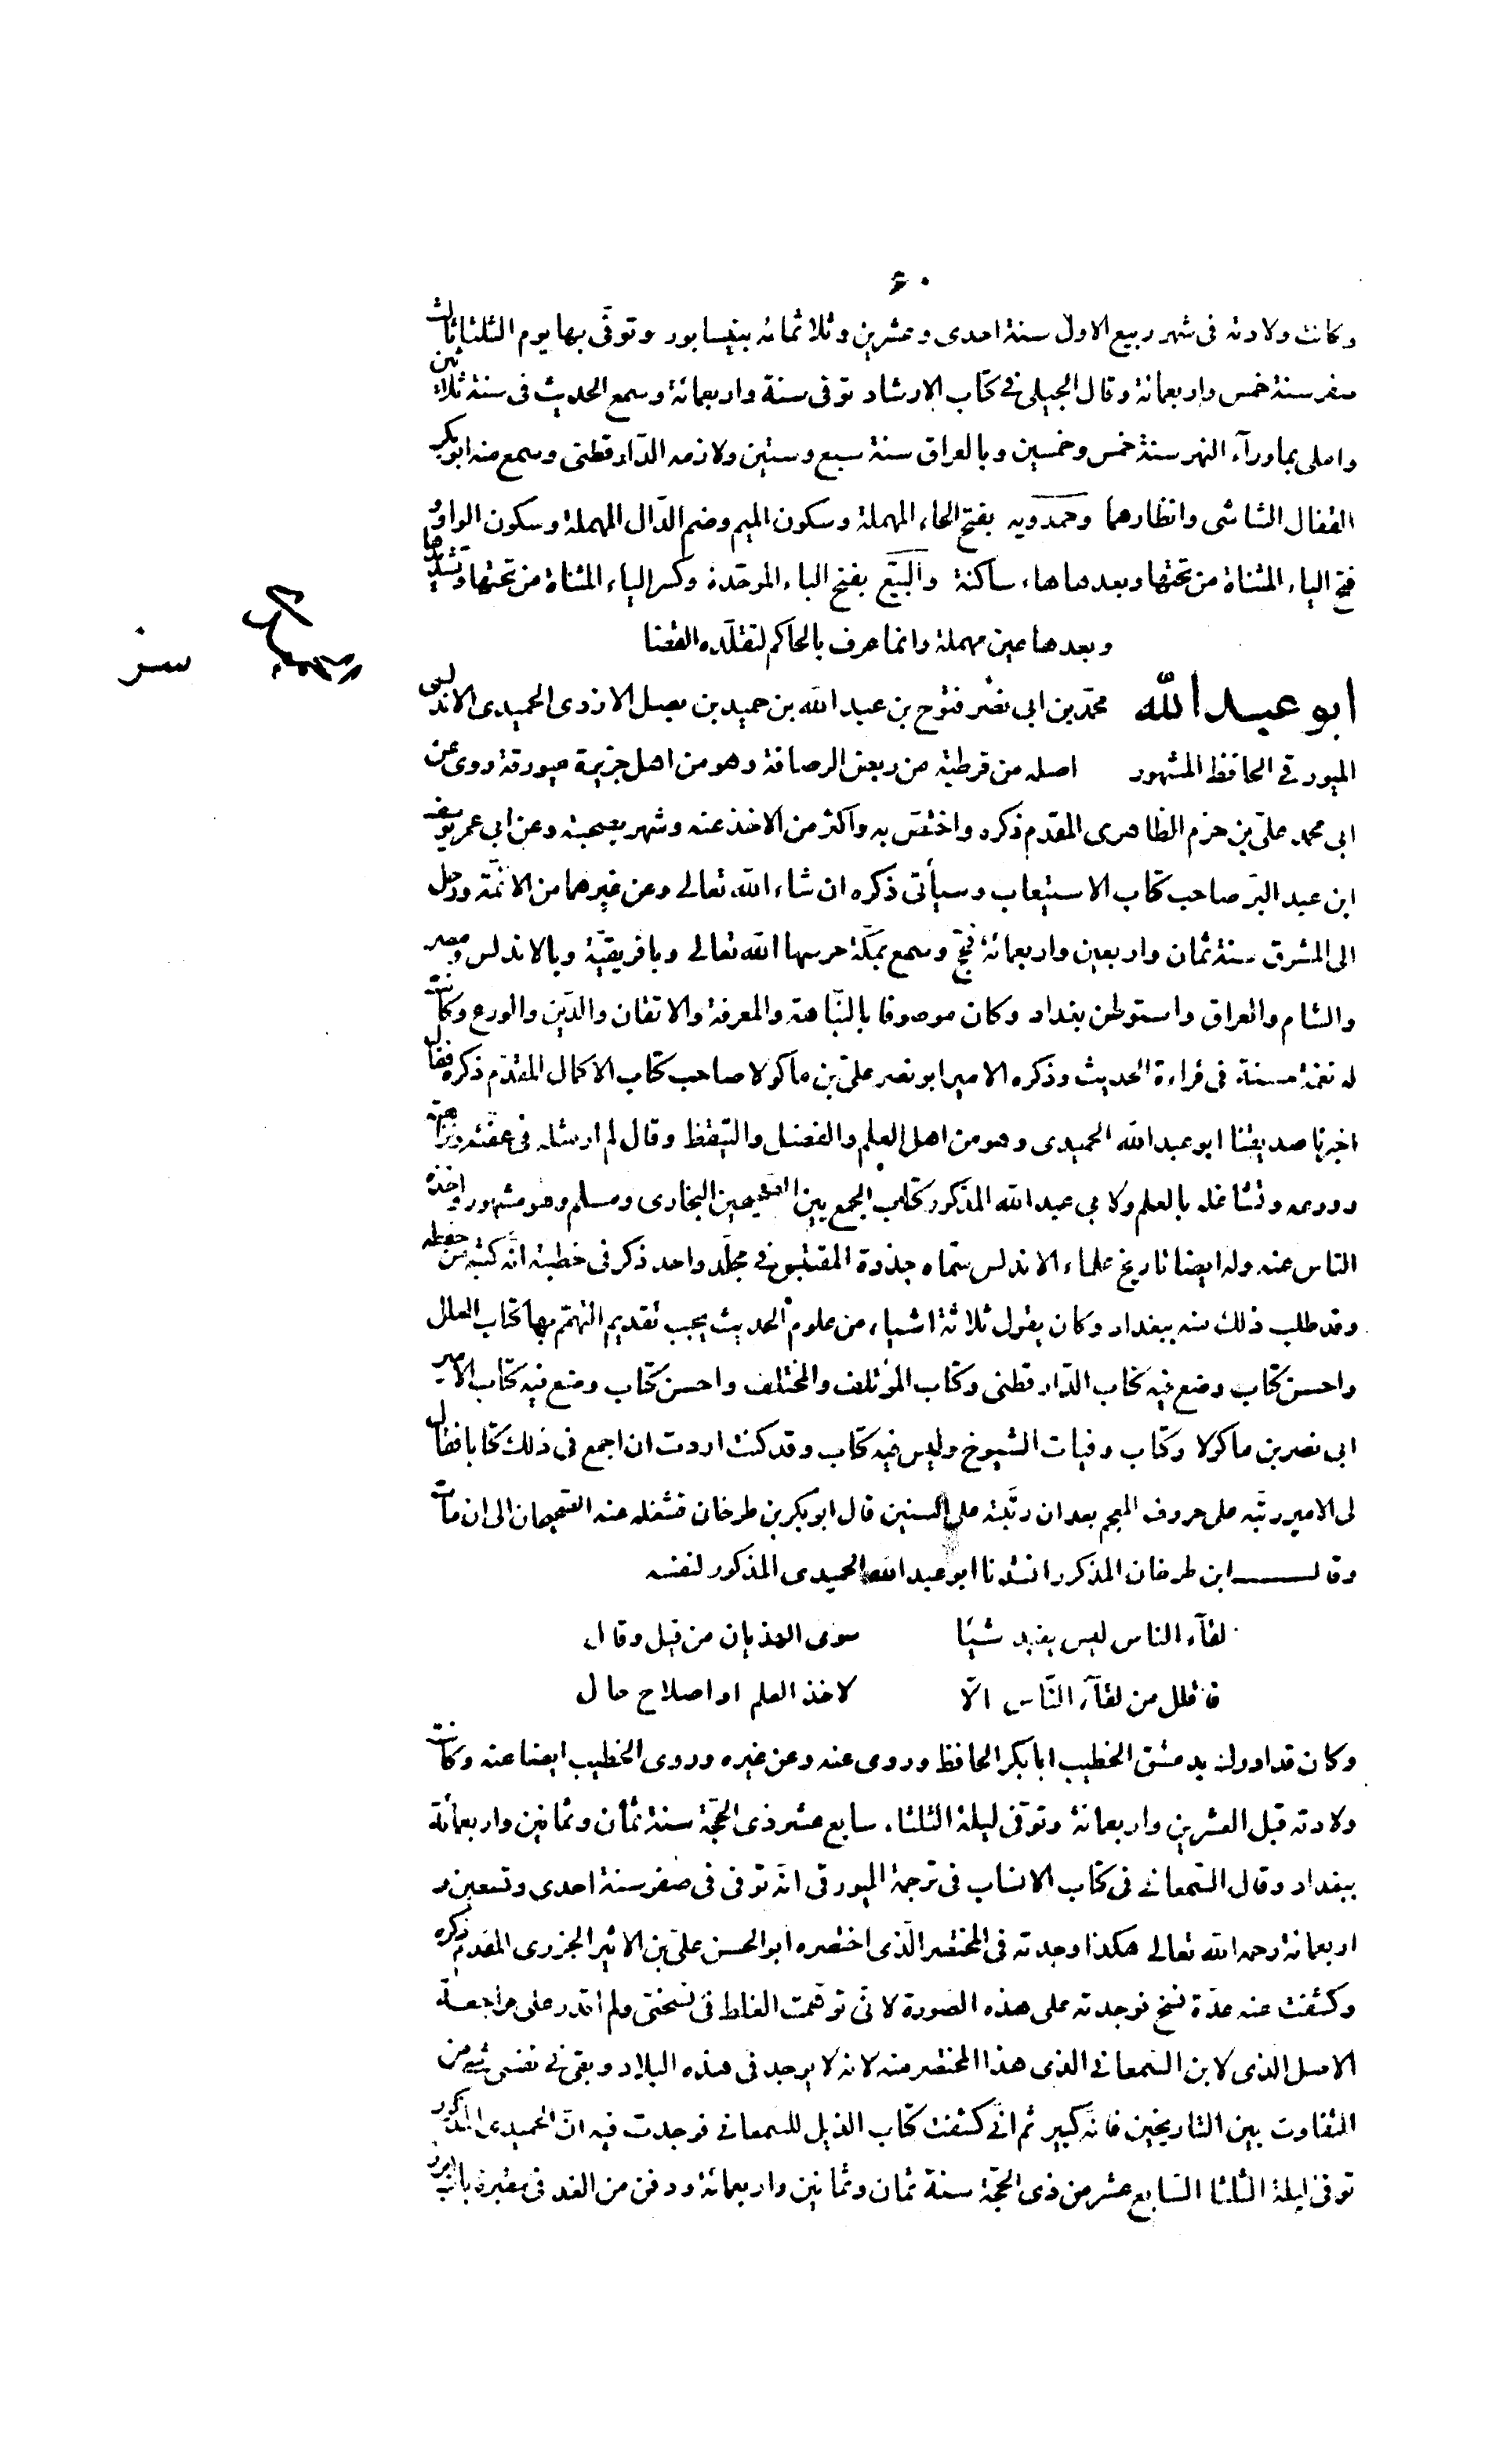 ۶۰
وكانت ولادته فى شهر ربيع الاول سنة احدى وعشرين وثلاثمائه بنيسابور وتوفّى بها يوم الثلثا ثالث
صفر سنة خمس واربعمائة وقال الجيلى فى كتاب الارشاد توفى سنة واربعمائة وسمع الحديث فى سنة ثلاثين
واملى بماورآء النهر سنة خمس وخمسين وبالعراق سنة سبع وستين ولازمه الدّارقطنى وسمع منه ابوبكر
القفال الشاشى وانظارهما وحمدويه بفتح الحاء المهملة وسكون الميم وضم الدّال المهملة وسكون الواو و
فتح الياء المثناة من تحتها وبعدها هاء ساكنة والبَيّع بفتح الباء الموحّدة وكسر الياء المثناة من تحتها وتشديدها
وبعدها عين مهملة وانما عرف بالحاكم لتقلّده القضا
سز
ابو عبد الله محمّد بن ابى نصر فتوح بن عبد الله بن حميد بن يصل الازدى الحميدى الاندلسى
الميورقى الحافظ المشهور اصله من قرطبة من ربض الرصافة وهو من اهل جزيرة ميورقة روى عن
ابى محمد علىّ بن حزم الظاهرى المقدم ذكره واختصّ به واكثر من الاخذ عنه وشهر بصحبته وعن ابى عمر يوسف
ابن عبد البرّ صاحب كتاب الاستيعاب وسيأتى ذكره ان شاء الله تعالى وعن غيرهما من الائمّة ورحل
الى المشرق سنة ثمان واربعين واربعمائة فحجّ وسمع بمكّة حرسها الله تعالى وبافريقيّة وبالاندلس ومصر
والشام والعراق واستوطن بغداد وكان موصوفا بالنّباهة والمعرفة والاتقان والدّين والورع وكانت
له نغمة حسنة فى قراءة الحديث وذكره الامير ابونصر علىّ بن ماكولا صاحب كتاب الاكمال المقدّم ذكره فقال
اخبرنا صديقنا ابو عبد الله الحميدى وهو من اهل العلم والفضل والتيقظ وقال لم ار مثله فى عفته ونزاهته
وورعه وتشاغله بالعلم ولابى عبد الله المذكور كتاب الجمع بين الصحيحين البخارى ومسلم وهو مشهور واخذه
الناس عنه وله ايضا تاريخ علماء الاندلس سمّاه جذوة المقتبس فى مجلّد واحد ذكر فى خطبته انّه كتبه من حفظه
وقد طلب ذلك منه ببغداد وكان يقول ثلاثة اشياء من علوم الحديث يجب تقديم التهمّم بها كتاب العلل
واحسن كتاب وضع فيه كتاب الدّارقطنى وكتاب المؤتلف والمختلف واحسن كتاب وضع فيه كتاب الامير
ابى نصر بن ماكولا وكتاب وفيات الشيوخ وليس فيه كتاب وقد كنت اردت ان اجمع فى ذلك كتابا فقال
لى الامير رتّبه على حروف المعجم بعد ان رتّبته على السنين قال ابو بكر بن طرخان فشغله عنه الصحيحان الى ان مات
وقال ابن طرخان المذكور انشدنا ابو عبد الله الحميدى المذكور لنفسه
لقآء الناس ليس يفيد شيئا سوى الهذيان من قيل وقال
فاقلل من لقآء النّاس الّا لاخذ العلم او اصلاح حال
وكان قد ادرك بدمشق الخطيب ابابكر الحافظ وروى عنه وعن غيره وروى الخطيب ايضا عنه وكانت
ولادته قبل العشرين واربعمائة وتوفّى ليلة الثلثاء سابع عشر ذى الحجّة سنة ثمان وثمانين واربعمائة
ببغداد وقال السّمعانى فى كتاب الانساب فى ترجمة الميورقى انّه توفى فى صفر سنة احدى وتسعين و
اربعمائة رحمه الله تعالى هكذا وجدته فى المختصر الّذى اختصره ابو الحسن علىّ بن الاثير الجزرى المقدم ذكره
وكشفت عنه عدّة نسخ فوجدته على هذه الصورة لانّى توهّمت الغلط فى نسختى ولم اقدر على مراجعة
الاصل الذى لابن السّمعانى الذى هذا المختصر منه لانه لا يوجد فى هذه البلاد وبقى فى نفسى شىء من
التفاوت بين التاريخين فانّه كبير ثم انّى كشفت كتاب الذيل للسمعانى فوجدت فيه انّ الحميدى المذكور
توفى ليلة الثلثا السّابع عشر من ذى الحجّة سنة ثمان وثمانين واربعمائة ودفن من الغد فى مقبرة باب ابرز